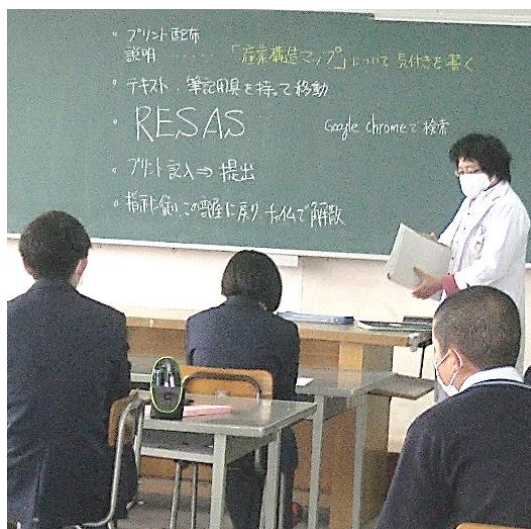 ・プリント配布
説明 ‥‥‥ 「産業構造マップ」について 気付きを書く
・テキスト・筆記用具を持って移動
・RESAS Google chromeで検索
・プリント記入⇒提出
・指示に従いこの部屋に戻り、チャイムで解散